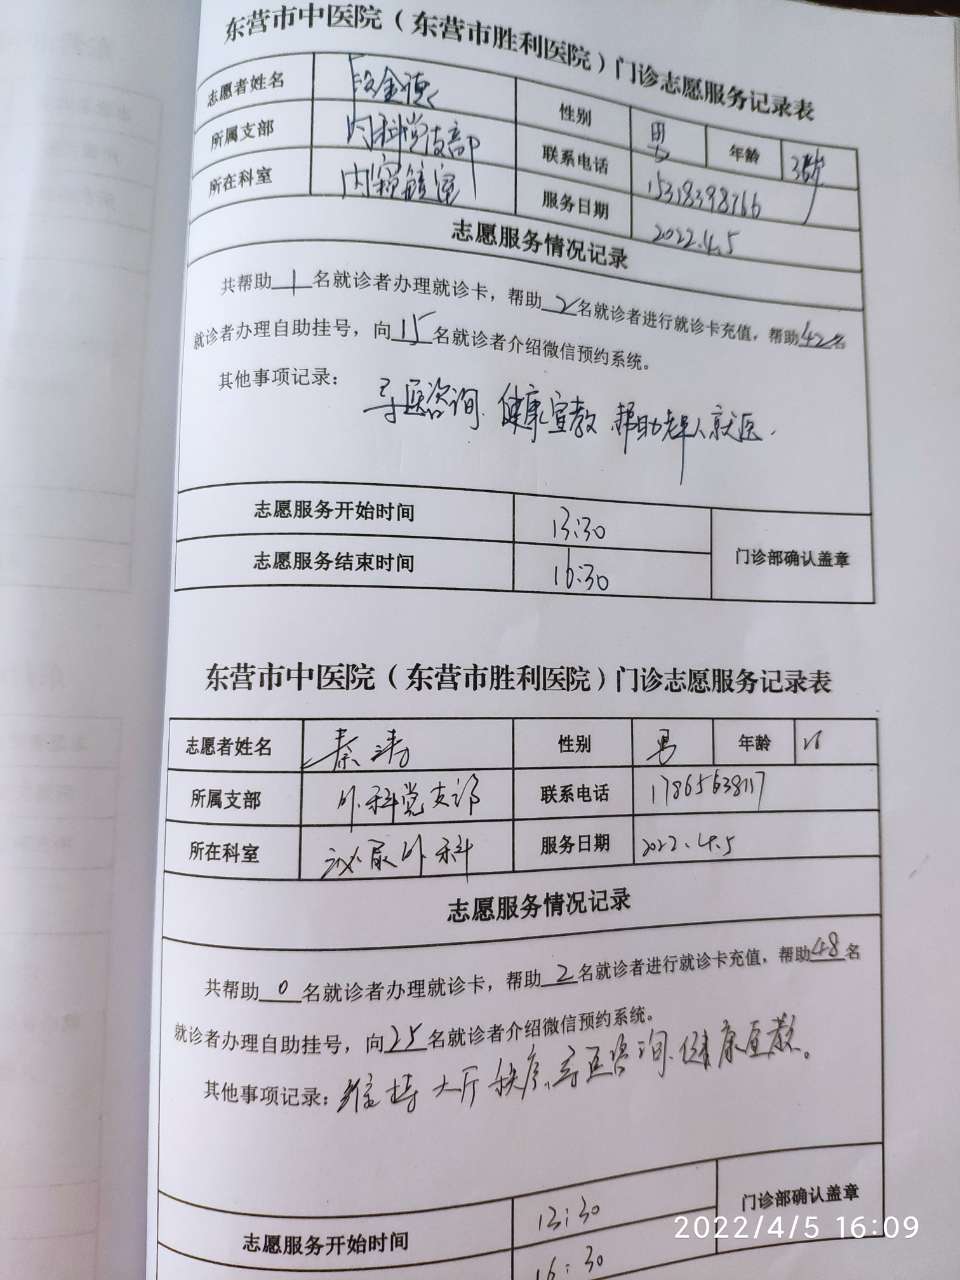 东营市中医院（东营市胜利医院）门诊志愿服务记录表
志愿者姓名 段金德 性别 男 年龄
所属支部 内科党支部 联系电话 15318398766
所在科室 内窥镜室 服务日期 2022.4.5
志愿服务情况记录
共帮助1名就诊者办理就诊卡，帮助2名就诊者进行就诊卡充值，帮助42名
就诊者办理自助挂号，向15名就诊者介绍微信预约系统。
其他事项记录：
导医咨询. 健康宣教. 帮助老年人就医.
志愿服务开始时间 13:30
志愿服务结束时间 16:30
门诊部确认盖章
东营市中医院（东营市胜利医院）门诊志愿服务记录表
志愿者姓名 秦涛 性别 男 年龄
所属支部 外科党支部 联系电话 17865638117
所在科室 泌尿外科 服务日期 2022.4.5
志愿服务情况记录
共帮助0名就诊者办理就诊卡，帮助2名就诊者进行就诊卡充值，帮助48名
就诊者办理自助挂号，向25名就诊者介绍微信预约系统。
其他事项记录：维持大厅秩序、导医咨询.健康宣教。
志愿服务开始时间 13:30
门诊部确认盖章
16:30
2022/4/5 16:09